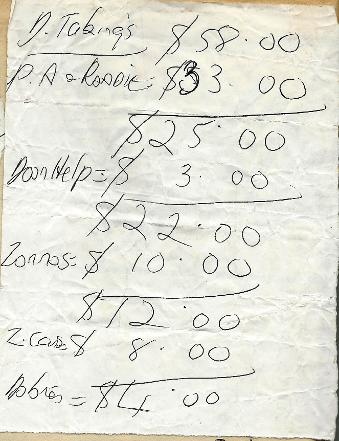 D. Takings $58.00
P.A & Roadie: $33.00
$25.00
Door Help = $ 3.00
$22.00
Zorros = $ 10.00
$12.00
$ 8.00
= $4.00